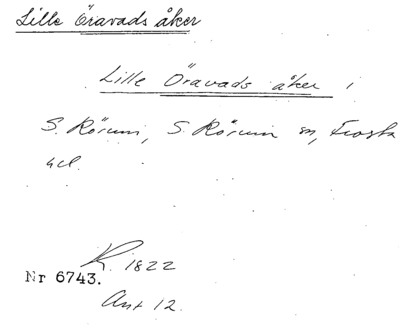 Lille Öravads åker
Lille Öravads åker i
S. Rörum, S. Rörum sn, Frosta
hd.
K. 1822
Nr 6743.
Ant 12.